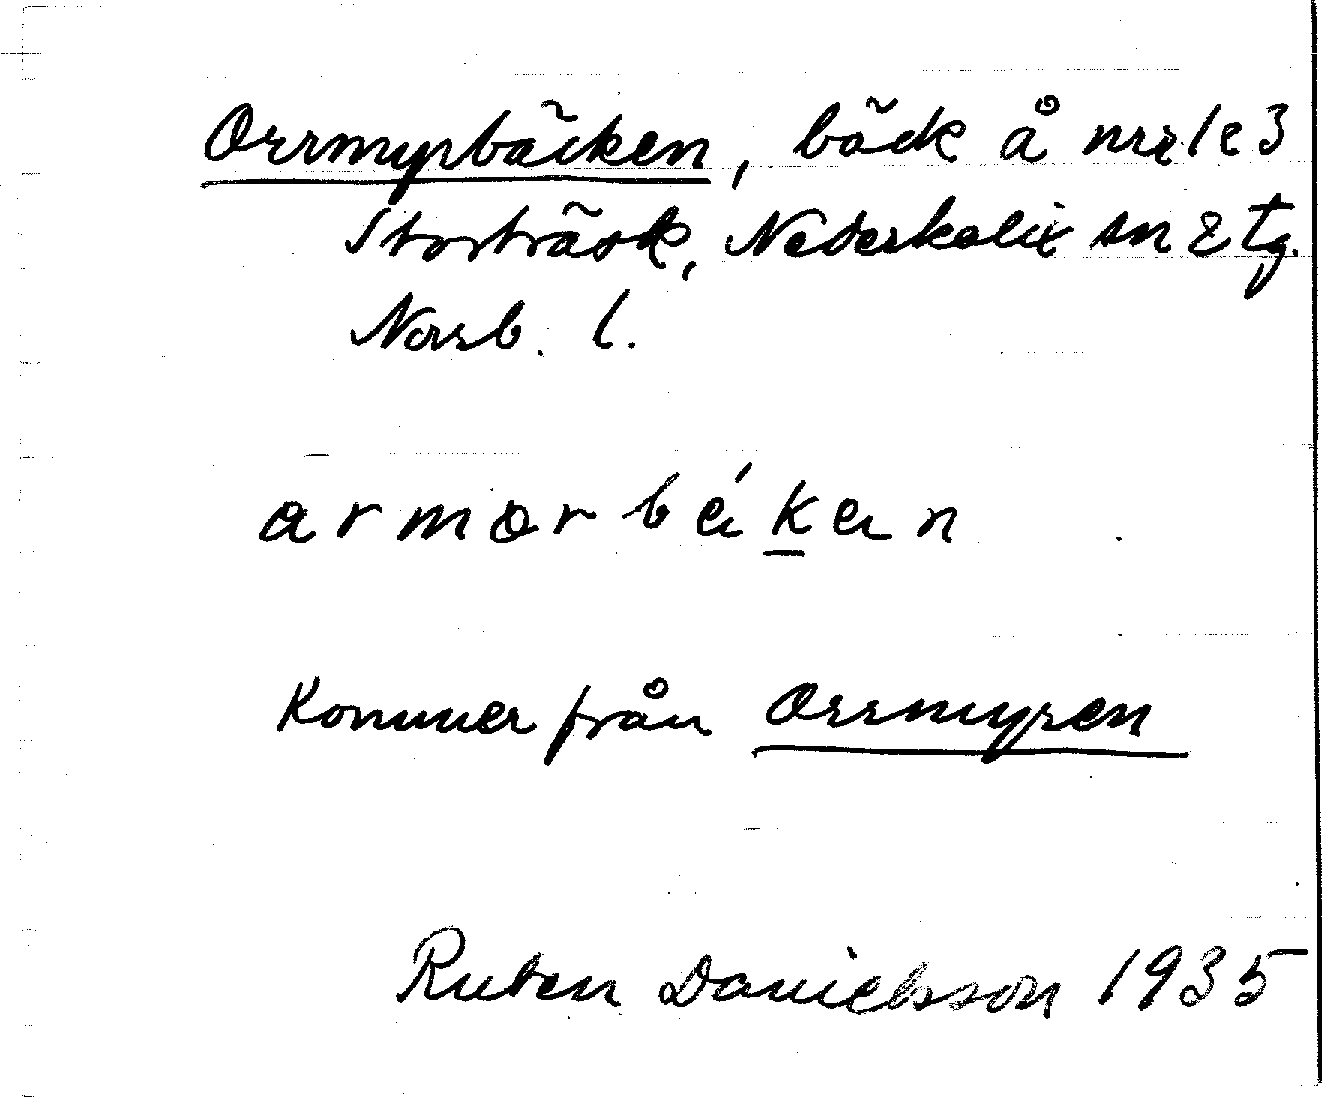 Orrmyrbäcken, bäck å nr 1 o 3
Storträsk, Nederkalix sn & tg.
Norrb. l.
armorbékan
Kommer från Orrmyren
Ruben Danielsson 1935